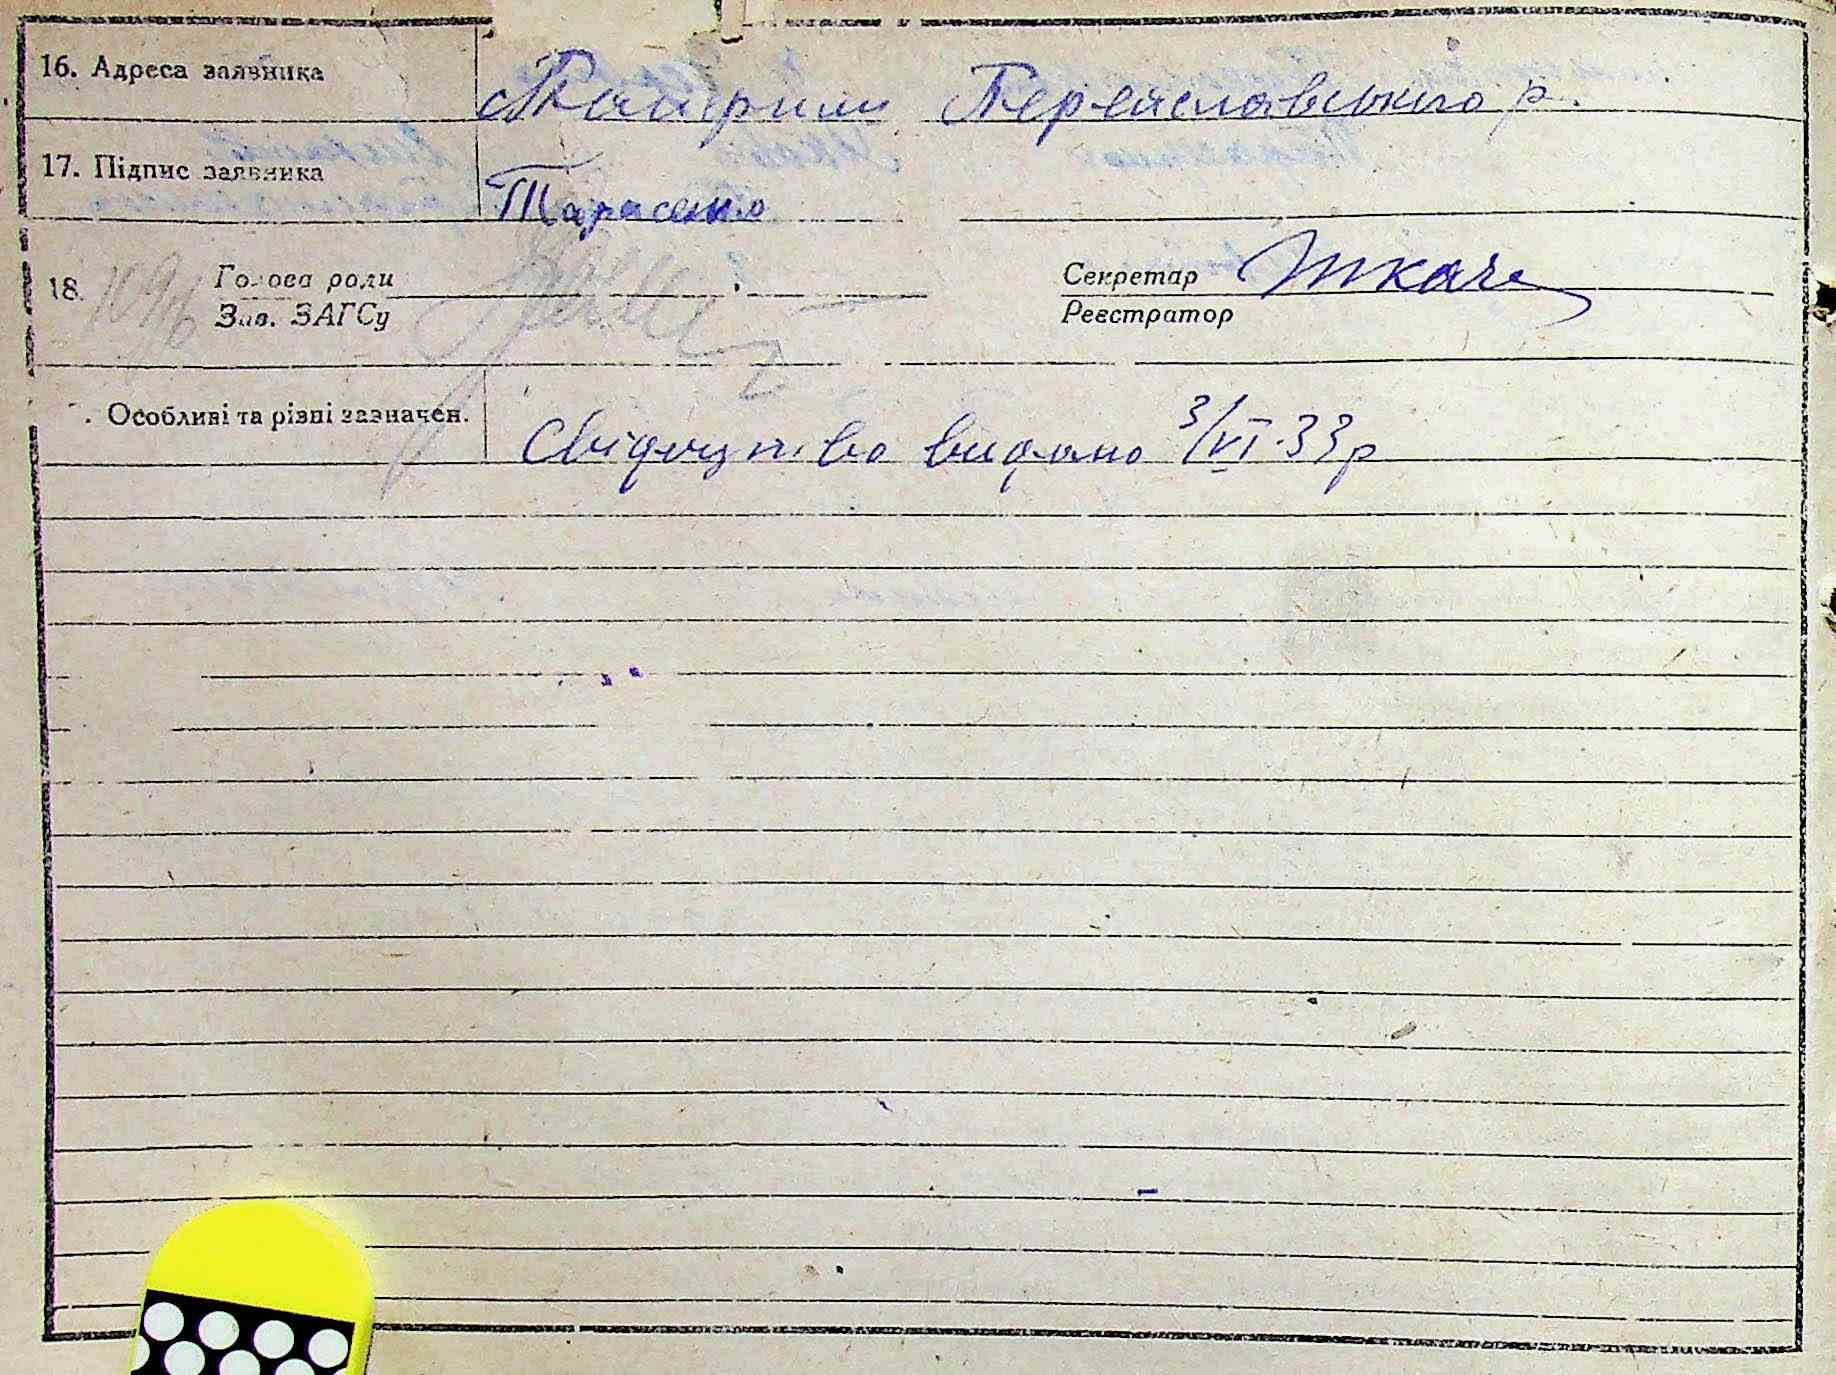 16. Адреса заявника Переяславського р.
17. Підпис заявника Тарасенко
18. Голова ради Секретар Ткач
Зав. ЗАГСу Реєстратор
Особливі та різні зазначен. Свідоцтво видано 3/VI-33р